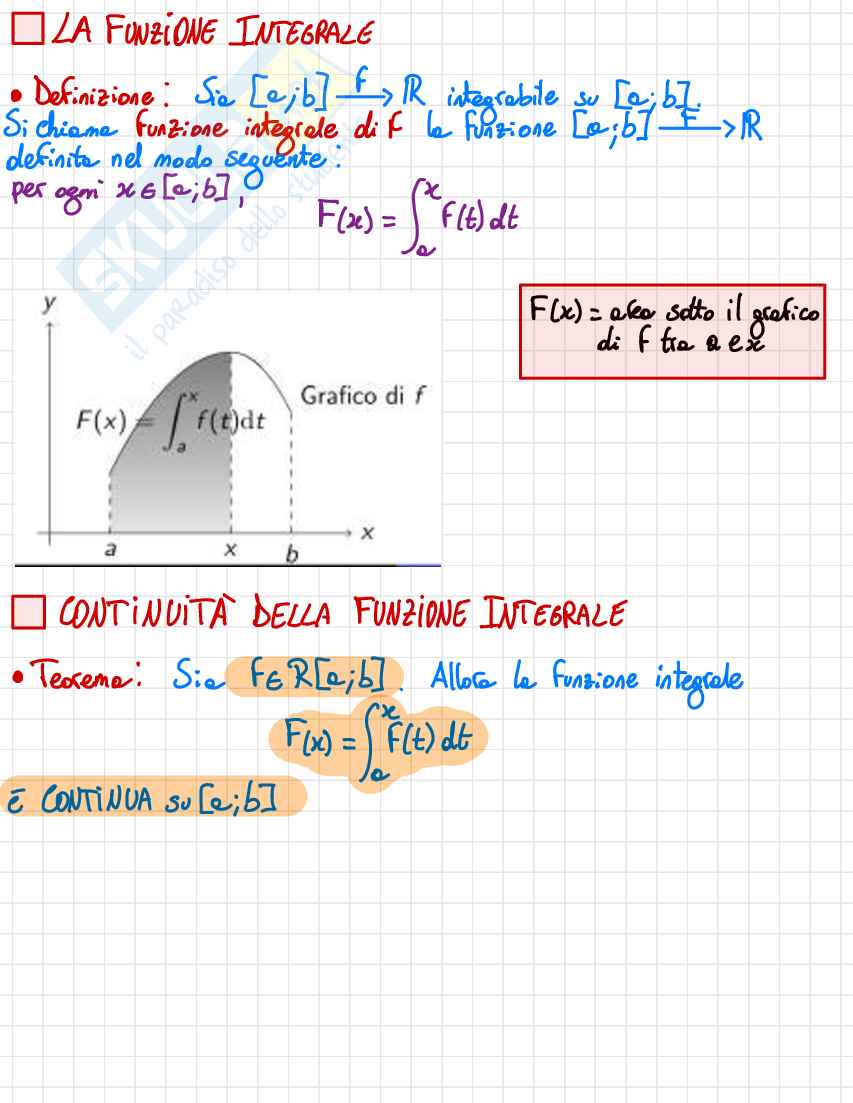 LA FUNZIONE INTEGRALE
• Definizione: Sia [a;b] f→ ℝ integrabile su [a;b].
Si chiama funzione integrale di f la funzione [a;b] F→ ℝ
definita nel modo seguente:
per ogni x ∈ [a;b],
F(x) = ∫ₐˣ f(t) dt
F(x) = area sotto il grafico
di f tra a e x
y
Grafico di f
F(x) = ∫ₐˣ f(t)dt
x
a x b
CONTINUITÀ DELLA FUNZIONE INTEGRALE
• Teorema: Sia f ∈ R[a;b]. Allora la funzione integrale
F(x) = ∫ₐˣ f(t) dt
È CONTINUA su [a;b]
il paradiso dello studente